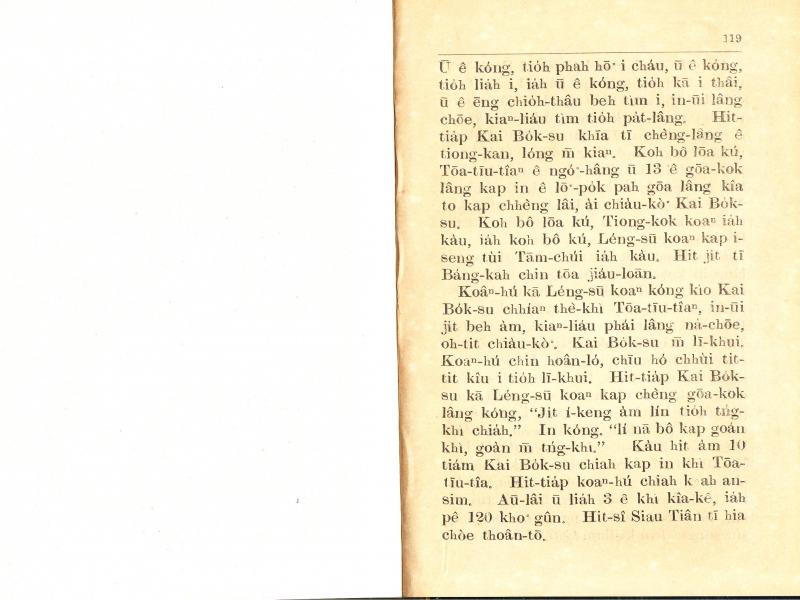 119
Ū ê kóng, tio̍h phah hō͘ i cháu, ū ê kóng,
tio̍h lia̍h i, ia̍h ū ê kóng, tio̍h kā i thâi,
ū ê ēng chio̍h-thâu beh tìm i, in-ūi lâng
chōe, kiaⁿ-liáu tìm tio̍h pa̍t-lâng. Hit-
tia̍p Kai Bo̍k-su khīa tī chèng-lâng ê
tiong-kan, lóng m̄ kiaⁿ. Koh bô lōa kú,
Tōa-tīu-tîaⁿ ê ngó͘-hâng ū 13 ê gōa-kok
lâng kap in ê lō͘-po̍k pah gōa lâng kîa
to kap chhèng lâi, ài chiàu-kò͘ Kai Bo̍k-
su. Koh bô lōa kú, Tiong-kok koaⁿ ia̍h
kàu, ia̍h koh bô kú, Léng-sū koaⁿ kap i-
seng tùi Tām-chúi ia̍h kàu. Hit ji̍t tī
Báng-kah chin tōa jiáu-loān.
Koâⁿ-hú kā Léng-sū koaⁿ kóng kìo Kai
Bo̍k-su chhíaⁿ thè-khì Tōa-tīu-tîaⁿ, in-ūi
ji̍t beh àm, kiaⁿ-liáu phái lâng ná-chōe,
oh-tit chiàu-kò͘. Kai Bo̍k-su m̄ lī-khui.
Koaⁿ-hú chin hoân-ló, chīu hó chhùi tit-
tit kîu i tio̍h lī-khui. Hit-tia̍p Kai Bo̍k-
su kā Léng-sū koaⁿ kap chèng gōa-kok
lâng kóng, “Ji̍t í-keng àm lín tio̍h tńg-
khì chia̍h.” In kóng. “lí nā bô kap goán
khì, goán m̄ tńg-khì.” Kàu hit àm 10
tiám Kai Bo̍k-su chiah kap in khì Tōa-
tīu-tîa. Hit-tia̍p koaⁿ-hú chiah k ah an-
sim. Aū-lâi ū lia̍h 3 ê khì kîa-kê, ia̍h
pê 120 kho͘ gûn. Hit-sî Siau Tiân tī hia
chòe thoân-tō.